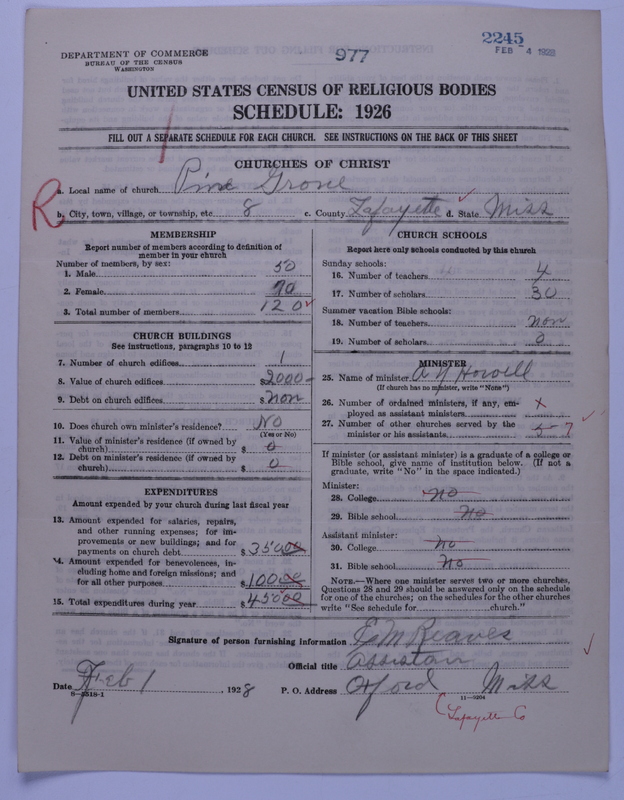 DEPARTMENT OF COMMERCE
BUREAU OF THE CENSUS
WASHINGTON
977
2245
FEB 4 1928
UNITED STATES CENSUS OF RELIGIOUS BODIES
SCHEDULE: 1926
FILL OUT A SEPARATE SCHEDULE FOR EACH CHURCH. SEE INSTRUCTIONS ON THE BACK OF THIS SHEET
CHURCHES OF CHRIST
R
a. Local name of church Pine Grove
b. City, town, village, or township, etc. 8 c. County Lafayette d. State Miss
MEMBERSHIP
Report number of members according to definition of member in your church
Number of members, by sex:
1. Male 50
2. Female 70
3. Total number of members 120
CHURCH BUILDINGS
See instructions, paragraphs 10 to 12
7. Number of church edifices 1
8. Value of church edifices $2000
9. Debt on church edifices $ non
10. Does church own minister's residence? No
(Yes or No)
11. Value of minister's residence (if owned by
church) $ 0
12. Debt on minister's residence (if owned by
church) $ 0
EXPENDITURES
Amount expended by your church during last fiscal year
13. Amount expended for salaries, repairs,
and other running expenses; for im-
provements or new buildings; and for
payments on church debt $ 35000
14. Amount expended for benevolences, in-
cluding home and foreign missions; and
for all other purposes $ 10000
15. Total expenditures during year $ 45000
CHURCH SCHOOLS
Report here only schools conducted by this church
Sunday schools:
16. Number of teachers 4
17. Number of scholars 30
Summer vacation Bible schools:
18. Number of teachers non
19. Number of scholars 0
MINISTER
25. Name of minister A N Howell
(If church has no minister, write "None")
26. Number of ordained ministers, if any, em-
ployed as assistant ministers x
27. Number of other churches served by the
minister or his assistants 5-7
If minister (or assistant minister) is a graduate of a college or
Bible school, give name of institution below. (If not a
graduate, write "No" in the space indicated.)
Minister:
28. College No
29. Bible school No
Assistant minister:
30. College No
31. Bible school No
NOTE.—Where one minister serves two or more churches,
Questions 28 and 29 should be answered only on the schedule
for one of the churches; on the schedules for the other churches
write "See schedule for church."
Signature of person furnishing information E M Reaves
Official title Assistan
Date Feb 1, 1928 P. O. Address Oford Miss
8-5518-1
11-9204
(Lafayette Co